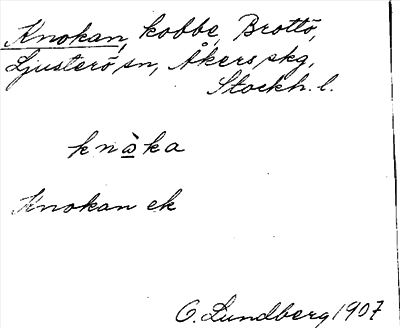 Knokan, kobbe, Brottö,
Ljusterö sn, Åkers skg,
Stockh. l.
knàka
Knokan ek
O. Lundberg 1907